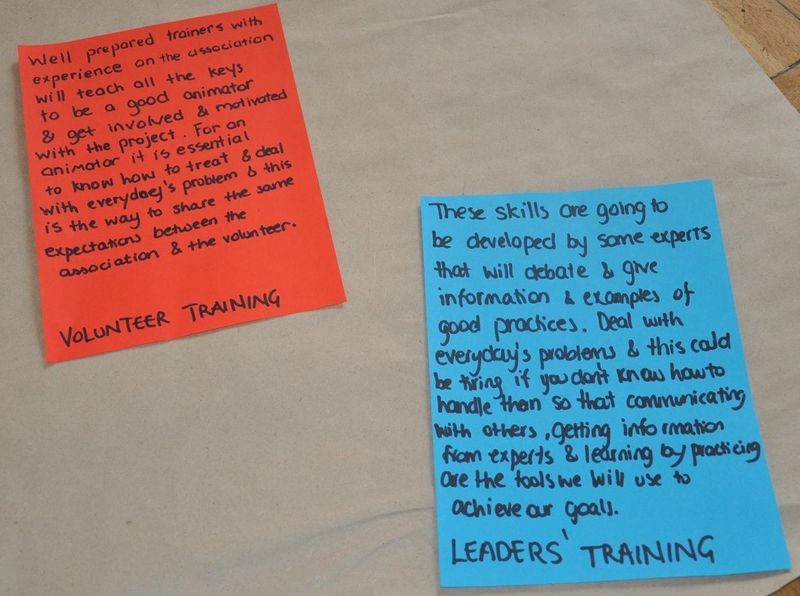 Well prepared trainers with
experience on the association
will teach all the keys
to be a good animator
& get involved & motivated
with the project. For an
animator it is essential
to know how to treat & deal
with everyday's problem & this
is the way to share the same
expectations between the
association & the volunteer.
VOLUNTEER TRAINING
These skills are going to
be developed by some experts
that will debate & give
information & examples of
good practices. Deal with
everyday's problems & this cold
be tiring if you don't know how to
handle then so that communicating
with others, getting information
from experts & learning by practicing
are the tools we will use to
achieve our goals.
LEADERS' TRAINING